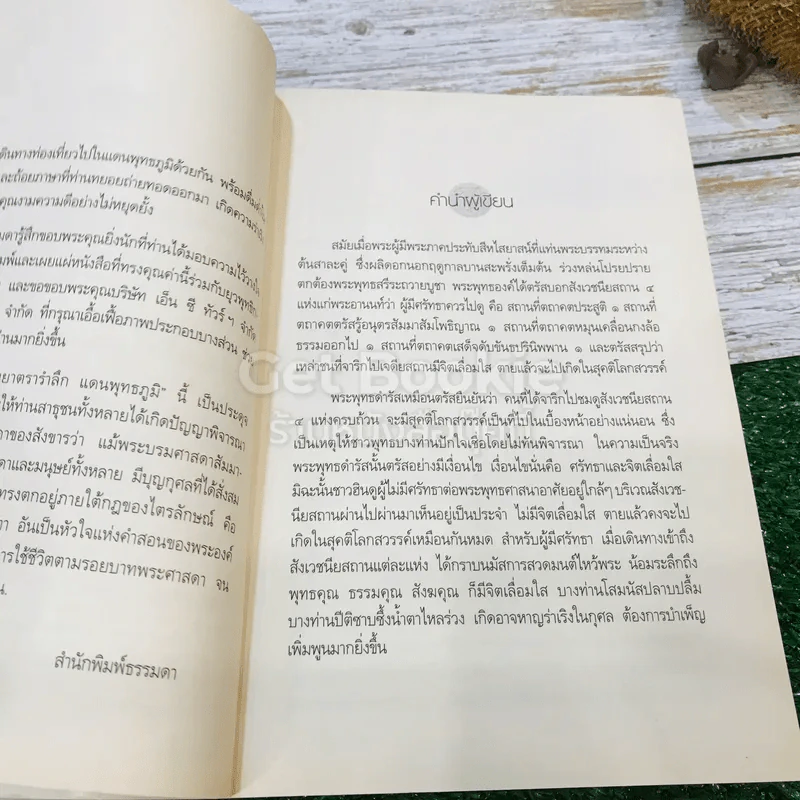 ดินทางท่องเที่ยวไปในแดนพุทธภูมิด้วยกัน พร้อมดื่มด่ำ
ละถ้อยภาษาที่ท่านทยอยถ่ายทอดออกมา เกิดความ
คุณงามความดีอย่างไม่หยุดยั้ง
มดารู้สึกขอบพระคุณยิ่งนักที่ท่านได้มอบความไว้วางใจ
มพ์และเผยแผ่หนังสือที่ทรงคุณค่านี้ร่วมกับยุวพุทธิก
และขอขอบพระคุณบริษัท เอ็น ซี ทัวร์ฯ จำกัด
จำกัด ที่กรุณาเอื้อเฟื้อภาพประกอบบางส่วน ช่วย
านมากยิ่งขึ้น
ยาตรารำลึก แดนพุทธภูมิ" นี้ เป็นประดุจ
ให้ท่านสาธุชนทั้งหลายได้เกิดปัญญาพิจารณา
าของสังขารว่า แม้พระบรมศาสดาสัมมา-
ดาและมนุษย์ทั้งหลาย มีบุญกุศลที่ได้สั่งสม
ทรงตกอยู่ภายใต้กฎของไตรลักษณ์ คือ
ตา อันเป็นหัวใจแห่งคำสอนของพระองค์
การใช้ชีวิตตามรอยบาทพระศาสดา จน
น.
สำนักพิมพ์ธรรมดา
คำนำผู้เขียน
สมัยเมื่อพระผู้มีพระภาคประทับสีหไสยาสน์ที่แท่นพระบรรทมระหว่าง
ต้นสาละคู่ ซึ่งผลิดอกนอกฤดูกาลบานสะพรั่งเต็มต้น ร่วงหล่นโปรยปราย
ตกต้องพระพุทธสรีระถวายบูชา พระพุทธองค์ได้ตรัสบอกสังเวชนียสถาน ๔
แห่งแก่พระอานนท์ว่า ผู้มีศรัทธาควรไปดู คือ สถานที่ตถาคตประสูติ ๑ สถานที่
ตถาคตตรัสรู้อนุตรสัมมาสัมโพธิญาณ ๑ สถานที่ตถาคตหมุนเคลื่อนกงล้อ
ธรรมออกไป ๑ สถานที่ตถาคตเสด็จดับขันธปรินิพพาน ๑ และตรัสสรุปว่า
เหล่าชนที่จาริกไปเจดียสถานมีจิตเลื่อมใส ตายแล้วจะไปเกิดในสุคติโลกสวรรค์
พระพุทธดำรัสเหมือนตรัสยืนยันว่า คนที่ได้จาริกไปชมดูสังเวชนียสถาน
๔ แห่งครบถ้วน จะมีสุคติโลกสวรรค์เป็นที่ไปในเบื้องหน้าอย่างแน่นอน ซึ่ง
เป็นเหตุให้ชาวพุทธบางท่านปักใจเชื่อโดยไม่ทันพิจารณา ในความเป็นจริง
พระพุทธดำรัสนั้นตรัสอย่างมีเงื่อนไข เงื่อนไขนั่นคือ ศรัทธาและจิตเลื่อมใส
มิฉะนั้นชาวฮินดูผู้ไม่มีศรัทธาต่อพระพุทธศาสนาอาศัยอยู่ใกล้ๆ บริเวณสังเวช-
นียสถานผ่านไปผ่านมาเห็นอยู่เป็นประจำ ไม่มีจิตเลื่อมใส ตายแล้วคงจะไป
เกิดในสุคติโลกสวรรค์เหมือนกันหมด สำหรับผู้มีศรัทธา เมื่อเดินทางเข้าถึง
สังเวชนียสถานแต่ละแห่ง ได้กราบนมัสการสวดมนต์ไหว้พระ น้อมระลึกถึง
พุทธคุณ ธรรมคุณ สังฆคุณ ก็มีจิตเลื่อมใส บางท่านโสมนัสปลาบปลื้ม
บางท่านปีติซาบซึ้งน้ำตาไหลร่วง เกิดอาจหาญร่าเริงในกุศล ต้องการบำเพ็ญ
เพิ่มพูนมากยิ่งขึ้น
Get Bookie